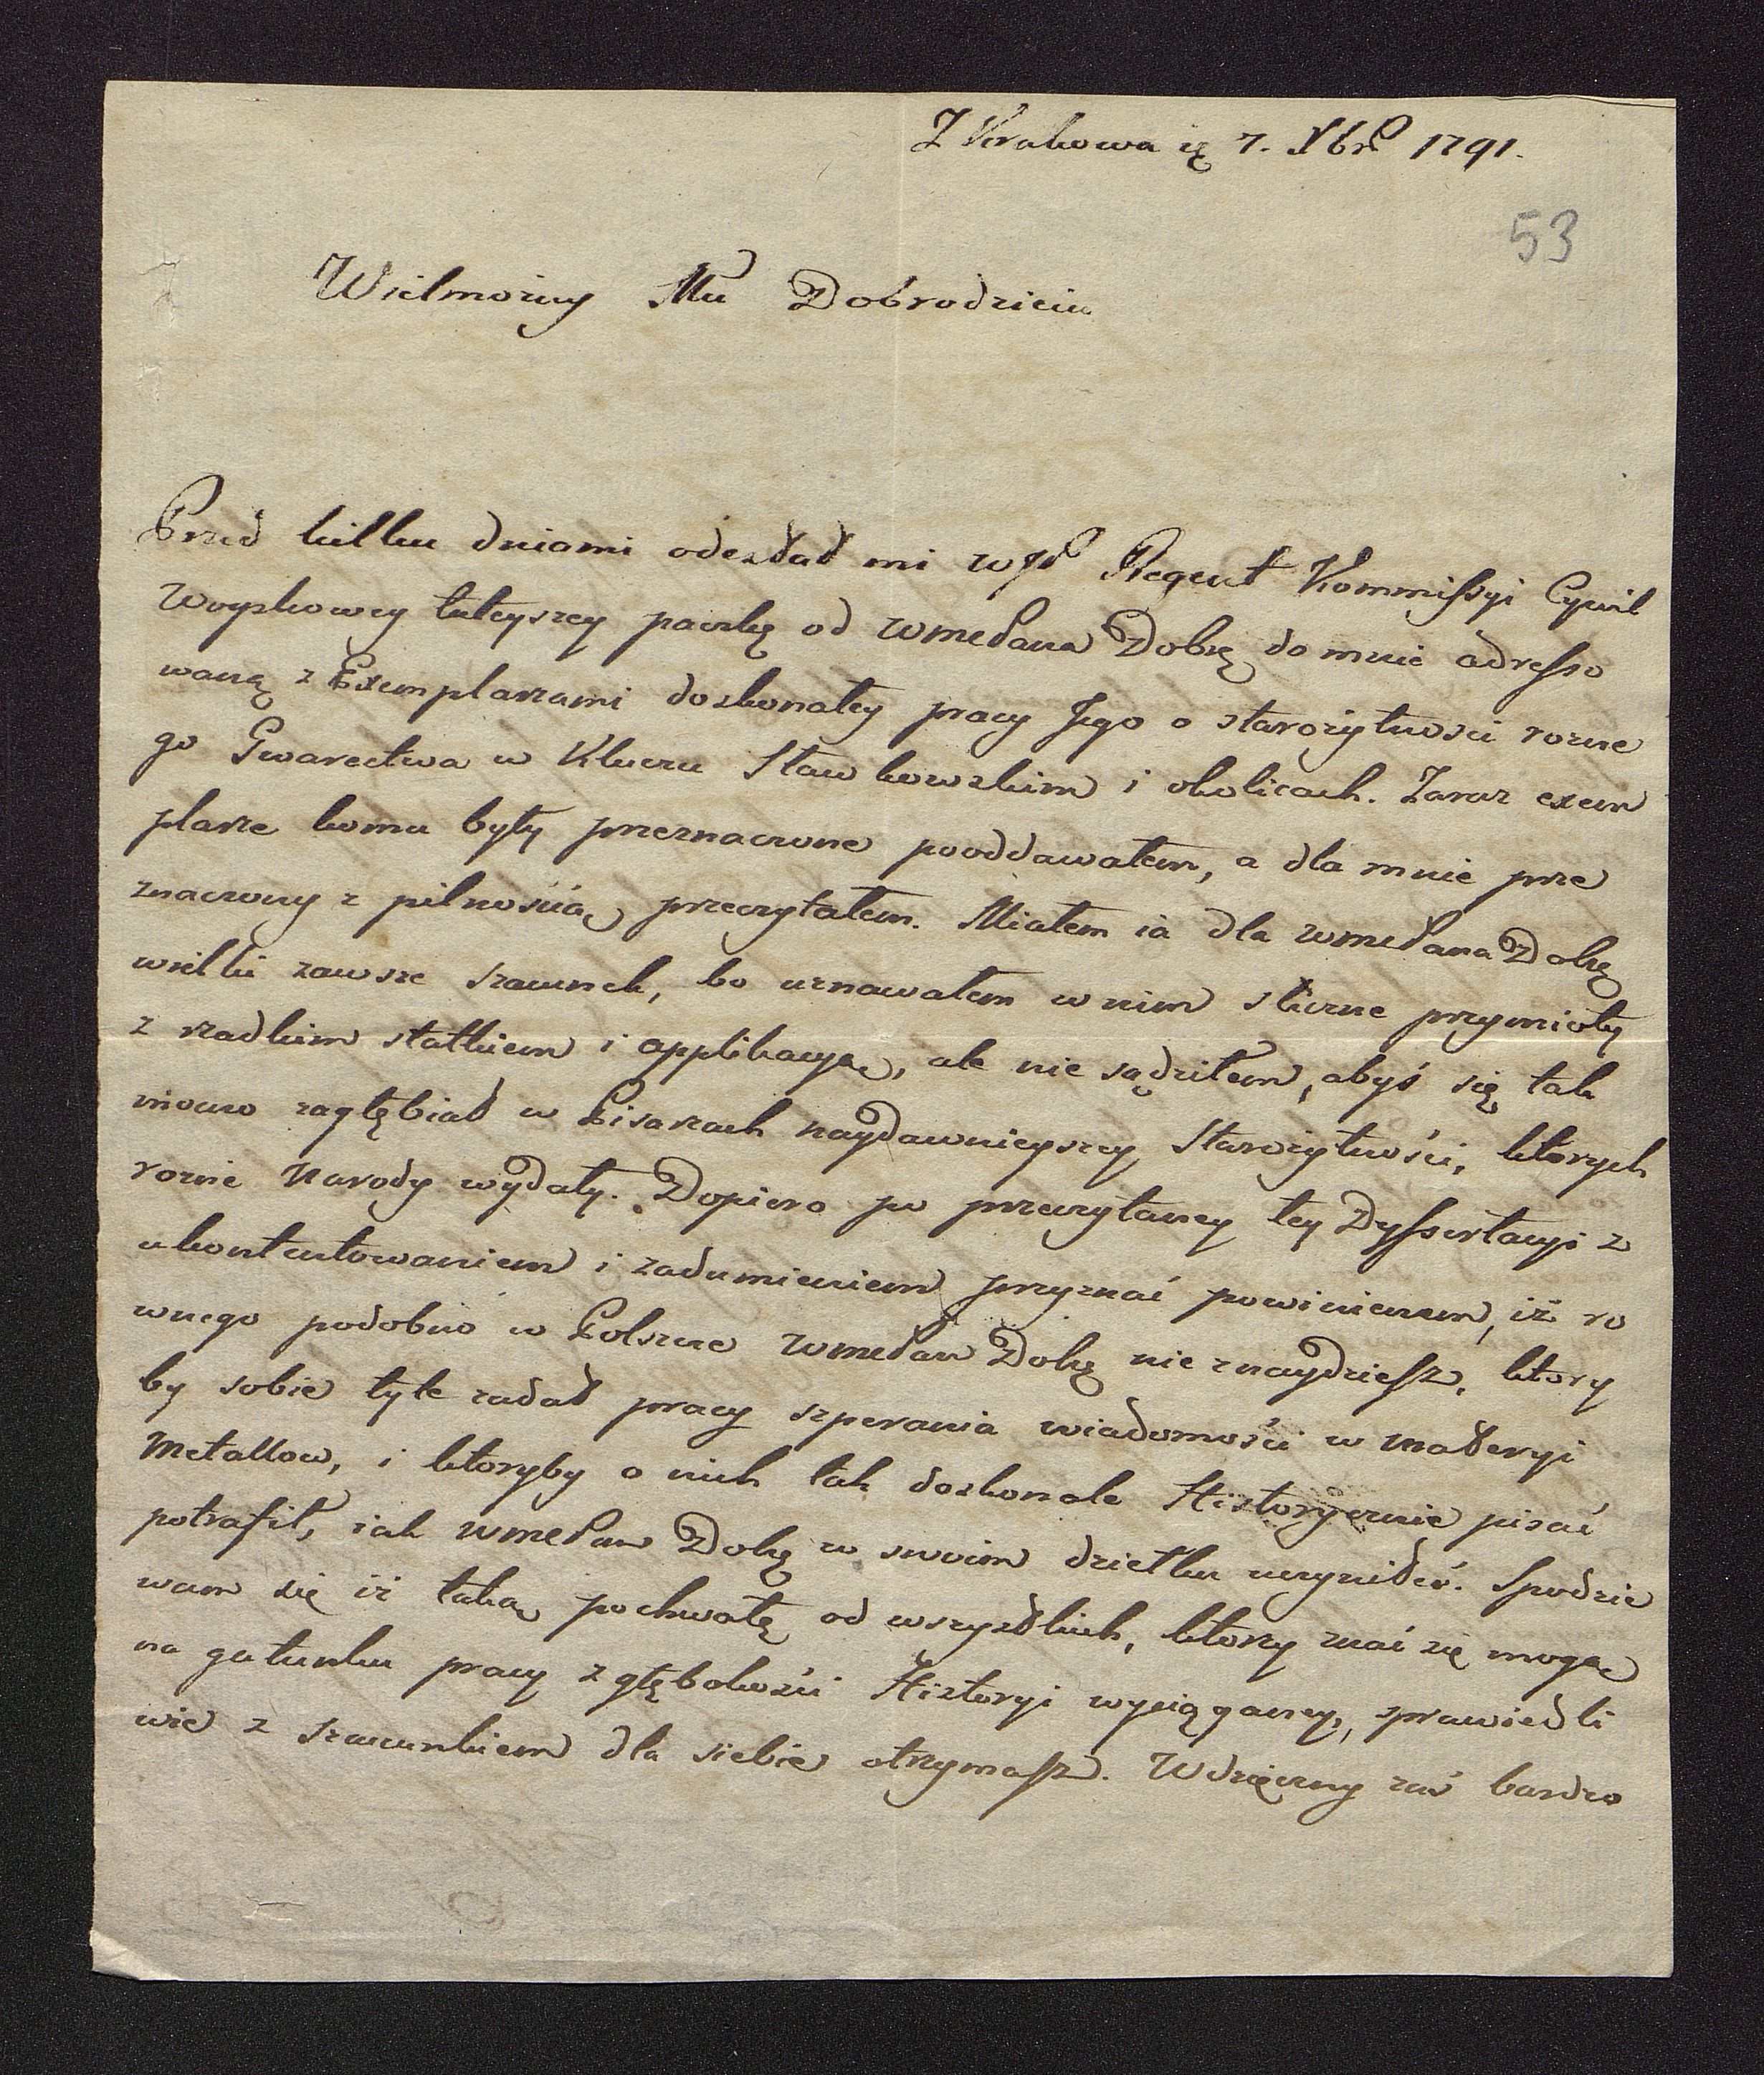 Z Krakowa 7. Xbra 1791.
53
Wielmożny Mu Dobrodzieiu
Przed kilku dniami odesłał mi WJP Regent Kommissyi Cywil
Woyskowey tuteyszey paczkę od WmcPana Dobrę do mnie adresso
waną z Exemplarzami doskonałey pracy Jego o starożytności rozne
go Gwarectwa w Kluczu Sławkowskim i okolicach. Zaraz exem
plarze komu były przeznaczone pooddawałem, a dla mnie prze
znaczony z pilnością przeczytałem. Miałem ia dla WmcPana Dobrę
wielki zawsze szacunek, bo uznawałem w nim sliczne przymioty
z rzadkim statkiem i applikacyą, ale nie sądziłem, abyś się tak
mocno zagłębiał w Pisarzach naydawnieyszey Starożytności, ktorych
rozne Narody wydały. Dopiero po przeczytaney tey Dyssertacyi z
ukontentowaniem i zadumieniem przyznać powinienem, iż ro
wnego podobno w Polszcze WmcPan Dobrę nie znaydziesz, ktory
by sobie tyle zadał pracy szperania wiadomości w materyi
Metallow, i ktoryby o nich tak doskonale Historycznie pisać
potrafił, iak WmcPan Dobrę w swoim dziełku uczyniłeś. Spodzie
wam się iż taką pochwałę od wszystkich, ktorzy znać się mogą
na gatunku pracy z głębokości Historyi wyciągganey, sprawiedli
wie z szacunkiem dla siebie otrzymasz. Wdzięczny zaś bardzo